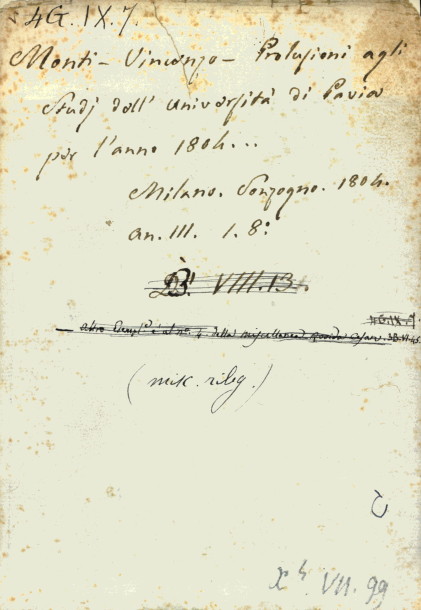 4G.IX.7.
Monti – Vincenzo – Prolusioni agli
Studj dell' Università di Pavia
per l'anno 1804...
Milano. Sonzogno. 1804.
an. III. 1. 8º
VIII.13.
4G.IX.7.
altro Esempl.e è al nº 4 della miscellanea
(misc. rileg.)
VII. 99